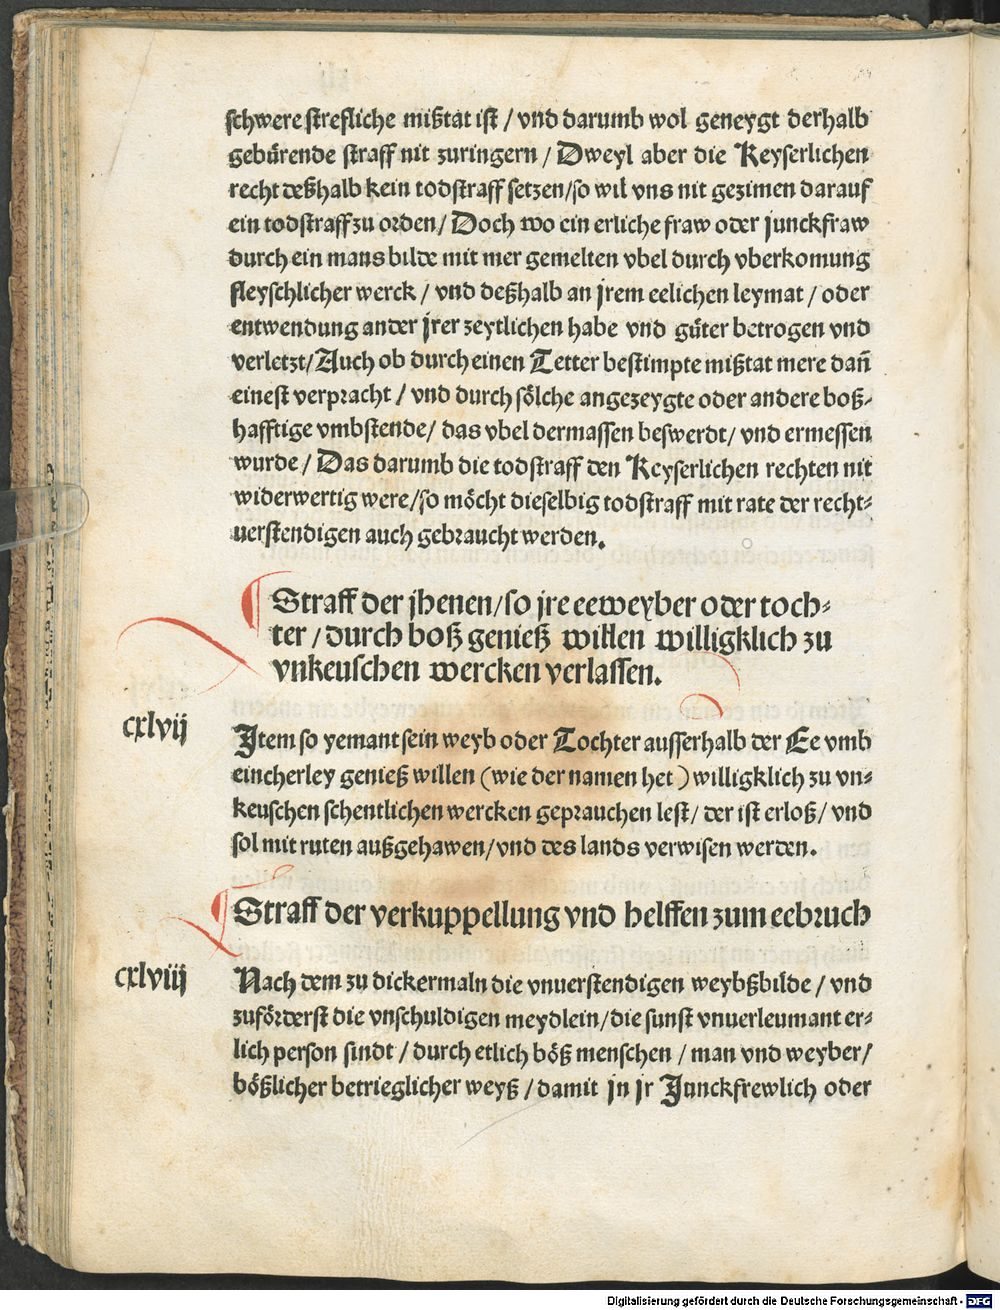 schwere strefliche mißtat ist / vnd darumb wol geneygt derhalb
gebürende straff nit zuringern / Dweyl aber die Keyserlichen
recht deßhalb kein todstraff setzen/so wil vns nit gezimen darauf
ein todstraff zu orden/ Doch wo ein erliche fraw oder junckfraw
durch ein mans bilde mit mer gemelten vbel durch vberkomung
fleyschlicher werck / vnd deßhalb an jrem eelichen leymat / oder
entwendung ander jrer zeytlichen habe vnd güter betrogen vnd
verletzt/Auch ob durch einen Tetter bestimpte mißtat mere dañ
einest verpracht / vnd durch sölche angezeygte oder andere boß-
hafftige vmbstende/ das vbel dermassen beswerdt/ vnd ermessen
wurde / Das darumb die todstraff den Keyserlichen rechten nit
widerwertig were/so möcht dieselbig todstraff mit rate der recht-
uerstendigen auch gebraucht werden.
Straff der jhenen/so jre eeweyber oder toch-
ter / durch boß genieß willen willigklich zu
vnkeuschen wercken verlassen.
cxlvij
Item so yemant sein weyb oder Tochter ausserhalb der Ee vmb
eincherley genieß willen (wie der namen het) willigklich zu vn-
keuschen schentlichen wercken geprauchen lest/ der ist erloß/ vnd
sol mit ruten außgehawen/vnd des lands verwisen werden.
Straff der verkuppellung vnd helffen zum eebruch
cxlviij
Nach dem zu dickermaln die vnuerstendigen weybßbilde / vnd
zuförderst die vnschuldigen meydlein/die sunst vnuerleumant er-
lich person sindt / durch etlich böß menschen / man vnd weyber/
bößlicher betrieglicher weyß / damit jn jr Junckfrewlich oder
Digitalisierung gefördert durch die Deutsche Forschungsgemeinschaft - DFG